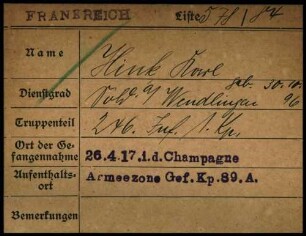 FRANKREICH Liste 578/84
Name Hink Karl
geb. 30.10.
Dienstgrad Sold. a/ Wendlingen 96
Truppenteil 246. Inf. 1. Kp.
Ort der Ge-
fangennahme 26.4.17.i.d.Champagne
Aufenthalts-
ort Armeezone Gef.Kp.89.A.
Bemerkungen